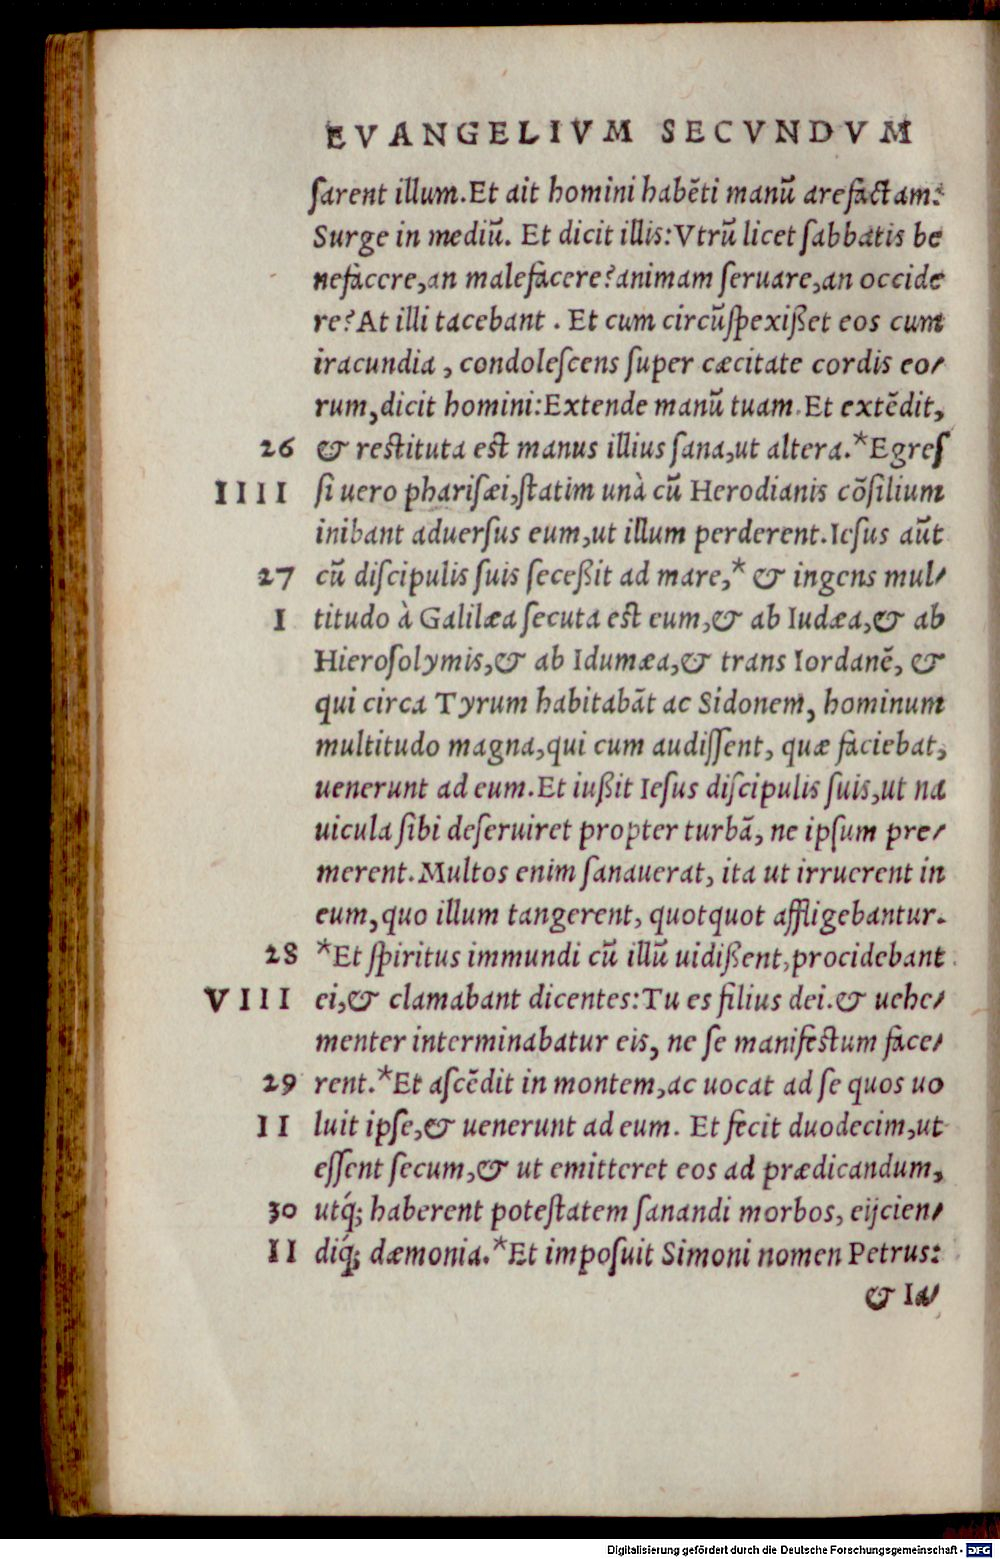 EVANGELIVM SECVNDVM
ſarent illum.Et ait homini habẽti manũ arefactam:
Surge in mediũ. Et dicit illis:Vtrũ licet ſabbatis be
nefacere,an malefacere?animam ſeruare,an occide
re?At illi tacebant . Et cum circũſpexißet eos cum
iracundia , condoleſcens ſuper cæcitate cordis eo/
rum,dicit homini:Extende manũ tuam.Et extẽdit,
26 & reſtituta eſt manus illius ſana,ut altera.*Egreſ
IIII ſi uero phariſæi,ſtatim unà cũ Herodianis cõſilium
inibant aduerſus eum,ut illum perderent.Ieſus aũt
27 cũ diſcipulis ſuis ſeceßit ad mare,* & ingens mul/
I titudo à Galilæa ſecuta eſt eum,& ab Iudæa,& ab
Hieroſolymis,& ab Idumæa,& trans Iordanẽ, &
qui circa Tyrum habitabãt ac Sidonem, hominum
multitudo magna,qui cum audiſſent, quæ faciebat,
uenerunt ad eum.Et iußit Ieſus diſcipulis ſuis,ut na
uicula ſibi deſeruiret propter turbã, ne ipſum pre/
merent.Multos enim ſanauerat, ita ut irruerent in
eum,quo illum tangerent, quotquot affligebantur.
28 *Et ſpiritus immundi cũ illũ uidißent,procidebant
VIII ei,& clamabant dicentes:Tu es filius dei.& uehe/
menter interminabatur eis, ne ſe manifeſtum face/
29 rent.*Et aſcẽdit in montem,ac uocat ad ſe quos uo
II luit ipſe,& uenerunt ad eum. Et fecit duodecim,ut
eſſent ſecum,& ut emitteret eos ad prædicandum,
30 utq́; haberent poteſtatem ſanandi morbos, eijcien/
II diq́; dæmonia.*Et impoſuit Simoni nomen Petrus:
& Ia/
Digitalisierung gefördert durch die Deutsche Forschungsgemeinschaft - DFG